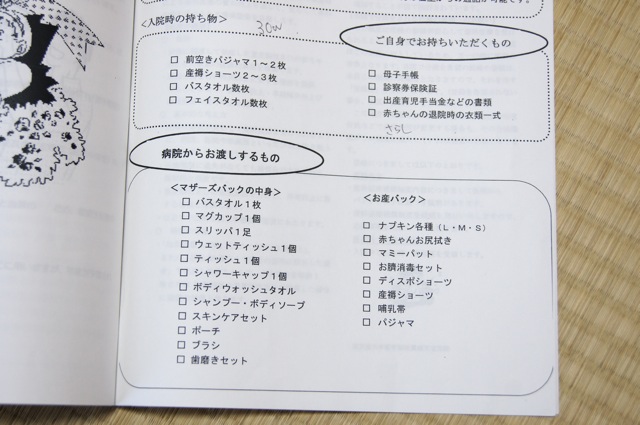 <入院時の持ち物>
30w
ご自身でお持ちいただくもの
□ 前空きパジャマ1～2枚
□ 産褥ショーツ2～3枚
□ バスタオル数枚
□ フェイスタオル数枚
□ 母子手帳
□ 診察券保険証
□ 出産育児手当金などの書類
□ 赤ちゃんの退院時の衣類一式
さらし
病院からお渡しするもの
<マザーズバックの中身>
□ バスタオル1枚
□ マグカップ1個
□ スリッパ1足
□ ウェットティッシュ1個
□ ティッシュ1個
□ シャワーキャップ1個
□ ボディウォッシュタオル
□ シャンプー・ボディソープ
□ スキンケアセット
□ ポーチ
□ ブラシ
□ 歯磨きセット
<お産パック>
□ ナプキン各種（L・M・S）
□ 赤ちゃんお尻拭き
□ マミーパット
□ お臍消毒セット
□ ディスポショーツ
□ 産褥ショーツ
□ 哺乳帯
□ パジャマ